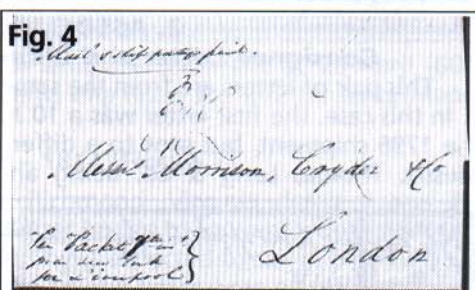 Fig. 4
Mail & ship postage paid.
Messrs Morrison, Cryder & Co
London
Per Packet
from New York
for Liverpool